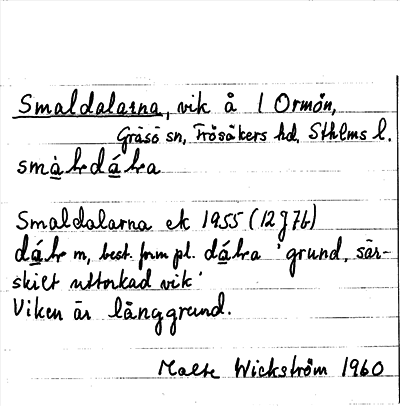 Smaldalarna, vik å l Ormön,
Gräsö sn, Frösåkers hd, Sthlms l.
Smaldalarna ek 1955 (12J7b)
m, best. form pl. 'grund, sär-
skilt uttorkad vik'
Viken är långgrund.
Malte Wickström 1960